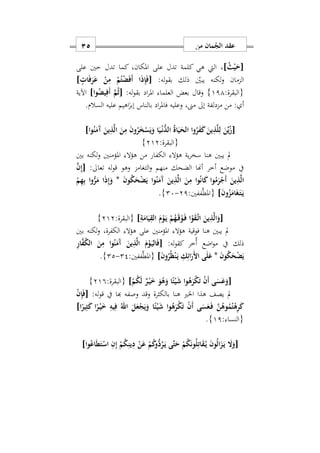 عقد الجُمان من
٣٥
[حَيْثُ]، كلمة تدل على المكان، كما تدل حين على
الزمان ولكنه يبيّن ذلك بقوله: [فَإِذَا أَفَضْتُمْ مِنْ عَرَفَاتٍ]
{البقرة:١٩٨} وقال بعض العلماء المراد بقوله: [ثُمَّ أَفِيضُوا] الآية
أي: من مزدلفة إلى منى، وعليه فالمراد بالناس إبراهيم عليه السلام.
[زُيِّنَ لِلَّذِينَ كَفَرُوا الْحَيَاةُ الدُّنْيَا وَيَسْخَرُونَ مِنَ الَّذِينَ آَمَنُوا]
{البقرة:٢١٢}
لم يبين هنا سخرية هؤلاء الكفار من هؤلاء المؤمنين ولكنه بين
في موضع أخر أنها الضحك منهم والتغامز وهو قوله تعالى: [إِنَّ
الَّذِينَ أَجْرَمُوا كَانُوا مِنَ الَّذِينَ آَمَنُوا يَضْحَكُونَ * وَإِذَا مَرُّوا بِهِمْ
يَتَغَامَزُونَ] {المطَّففين:٢٩-٣٠}.
[وَالَّذِينَ اتَّقَوْا فَوْقَهُمْ يَوْمَ القِيَامَةِ] {البقرة:٢١٢}
لم يبين هنا فوقية هؤلاء المؤمنين على هؤلاء الكفرة، ولكنه بين
ذلك في مواضع أُخر كقوله: [فَالْيَوْمَ الَّذِينَ آَمَنُوا مِنَ الكُفَّارِ
يَضْحَكُونَ * عَلَى الأَرَائِكِ يَنْظُرُونَ] {المطَّففين:٣٤-٣٥}.
[وَعَسَى أَنْ تَكْرَهُوا شَيْئًا وَهُوَ خَيْرٌ لَكُمْ] {البقرة:٢١٦}
لم يصف هذا الخير هنا بالكثرة وقد وصفه بها في قوله: [فَإِنْ
كَرِهْتُمُوهُنَّ فَعَسَى أَنْ تَكْرَهُوا شَيْئًا وَيَجْعَلَ اللهُ فِيهِ خَيْرًا كَثِيرًا]
{النساء:١٩}.
[وَلَا يَزَالُونَ يُقَاتِلُونَكُمْ حَتَّى يَرُدُّوكُمْ عَنْ دِينِكُمْ إِنِ اسْتَطَاعُوا]